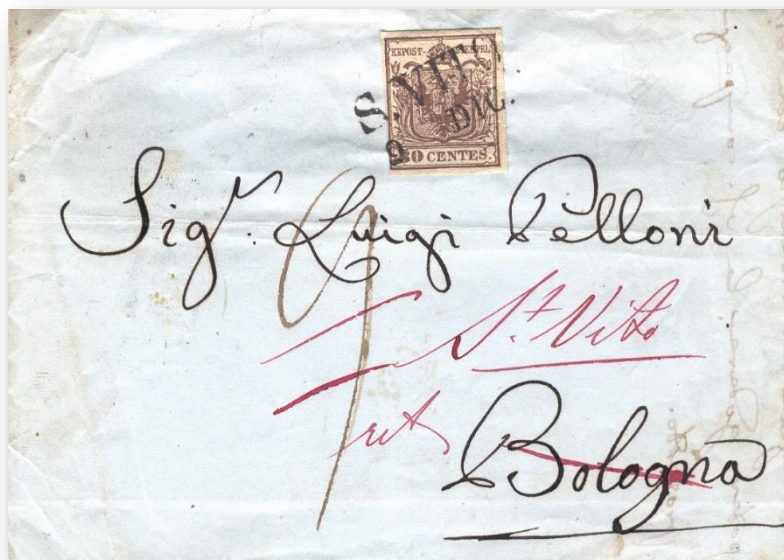 KKPOST-STEMPEL
S. VITO
9. DIC.
30 CENTES.
Sigr. Luigi Pelloni
St. Vito
Bologna